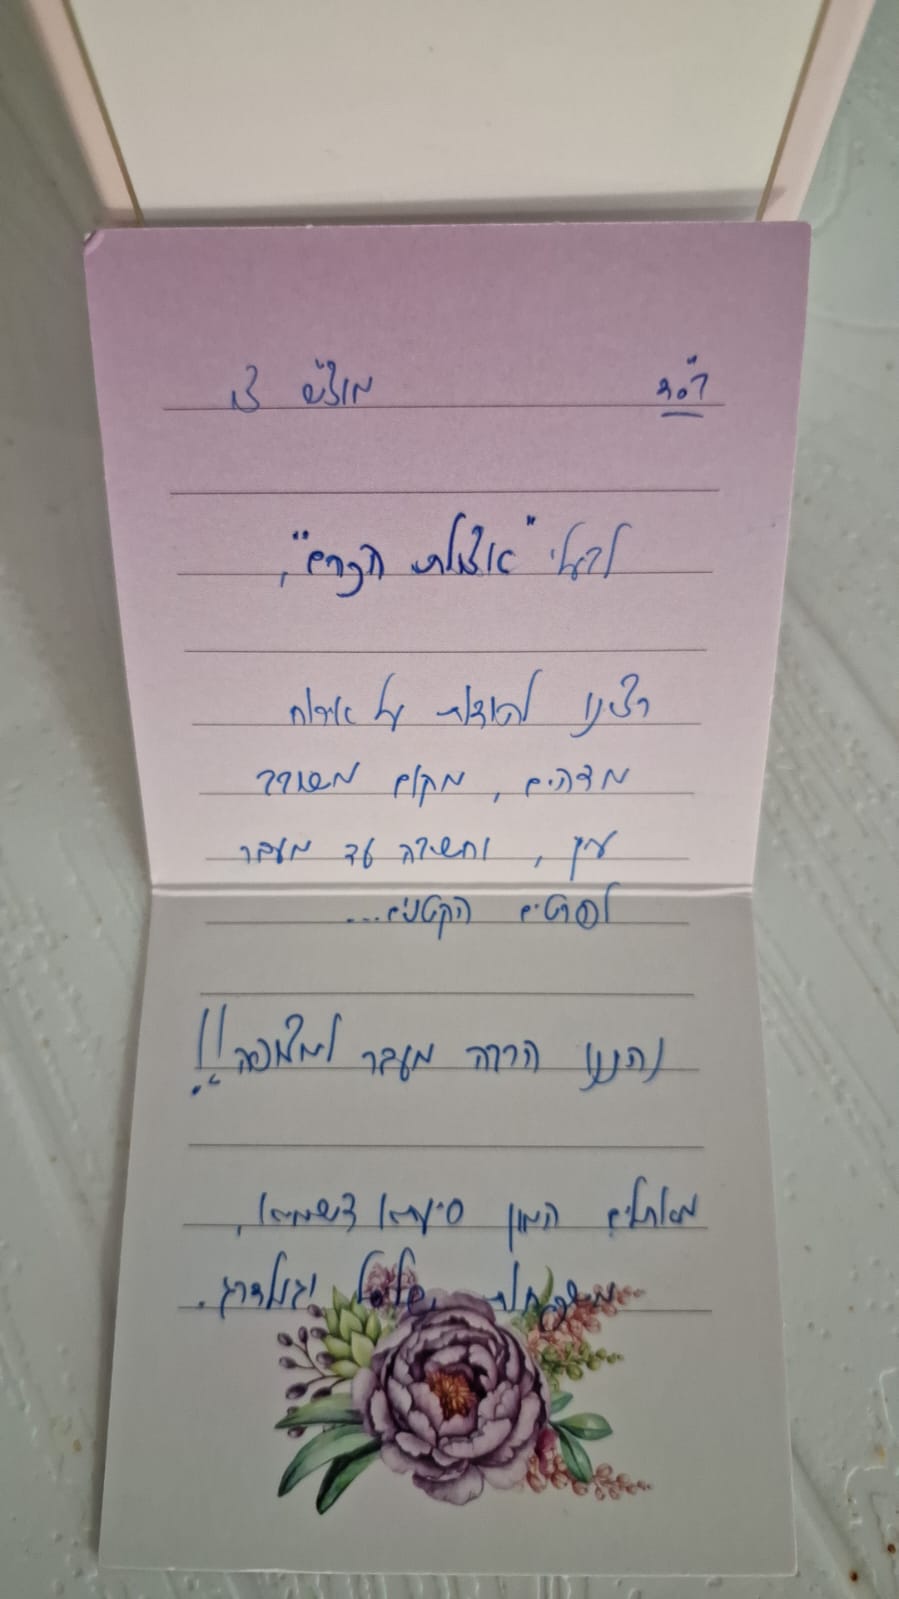 בס"ד מוצ"ש צו
לבעלי "אצולת הכרם",
רצינו להודות על אירוח
מדהים, מקום משובב
עין, וחשיבה עד מעבר
לפרטים הקטנים...
נהננו הרבה מעבר למצופה!!
מאחלים המון סיעתא דשמיא,
משפחות וגולדברג.